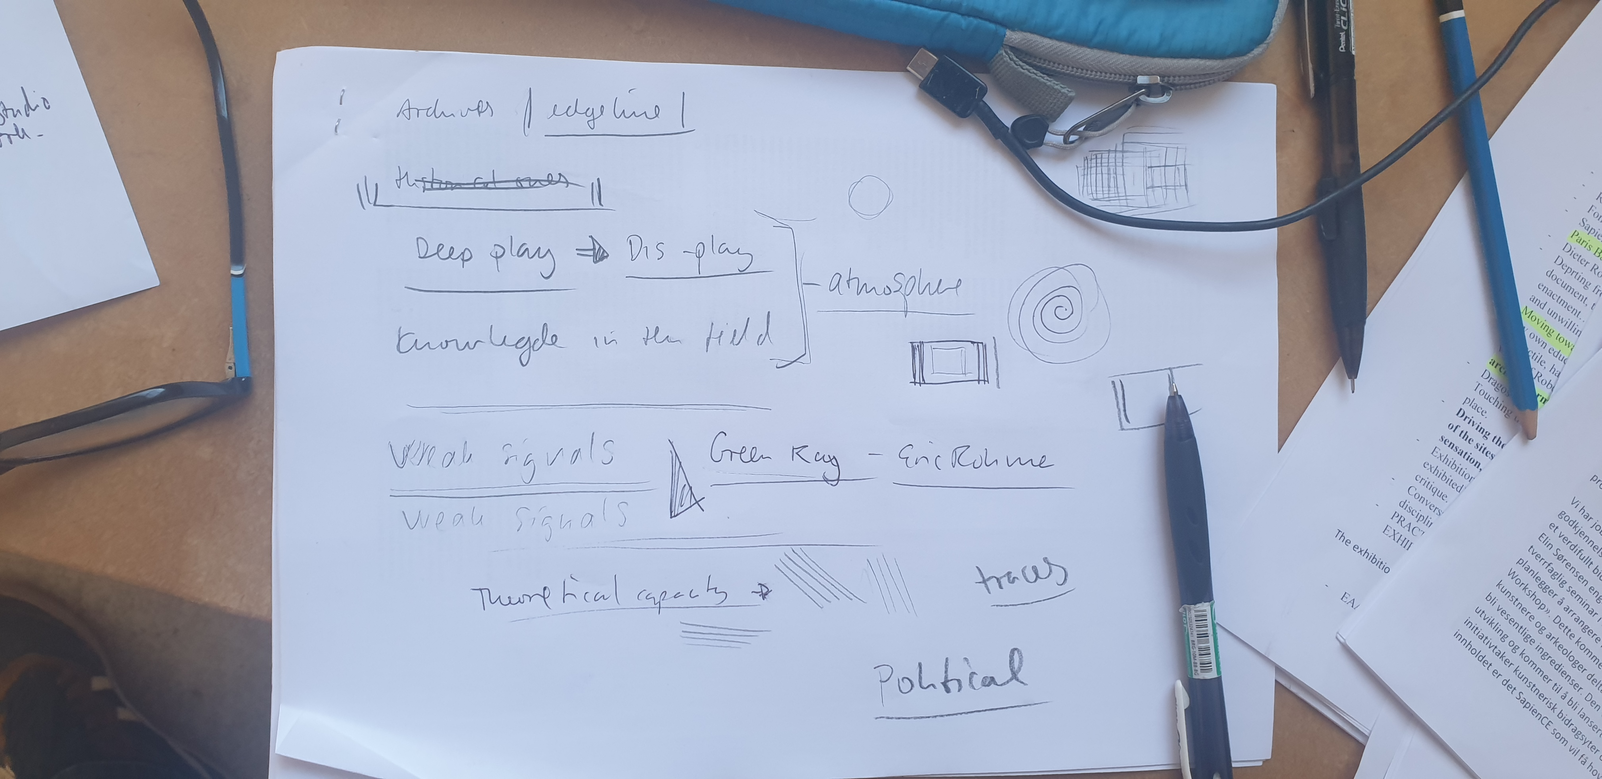 studio
Archives | edgeline |
Deep play → Dis-play
atmosphere
Knowlegde in the field
Weak signals
Green Ray - Eric Rohme
Weak signals
Theoretical capacity →
traces
Political
Pentel
Paris B
Dieter Ro
document.
enactment.
and unwillin
Moving towa
own educ
Touching
place.
Driving the
of the sites
sensation.
Exhibition
exhibited
critique.
Convers
disciplin
PRACT
EXHI
The exhibitio
EAA
Vi har job
godkjennel
et verdifullt bi
Elin Sørensen eng
tverrfaglig seminar
planlegger å arrangere
Workshop». Dette komme
kunstnere og arkeologer delta
bli vesentlige ingredienser. Den
utvikling og kommer til å bli lanser
initiativtaker kunstnerisk bidragsyter
innholdet er det SapienCE som vil få hov